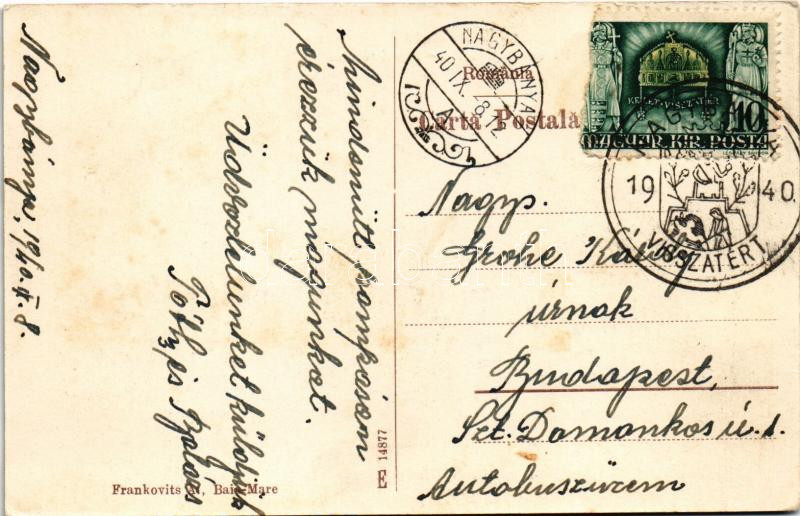 Nagybánya, 1940.IX.8.
Mindenütt pompásan
érezzük magunkat.
Üdvözletünket küldjük
Tóth és
Frankovits A., Baia-Mare
E 14877
NAGYBÁNYA
40 IX. 8
A
România
Carta Postala
KELET·VISSZATÉR
10
MAGYAR KIR. POSTA
NAGYBÁNYA
19 40.
VISSZATÉRT
Nagys.
Grohe Károly
úrnak
Budapest,
Szt. Domonkos ú. 1.
Autobuszüzem